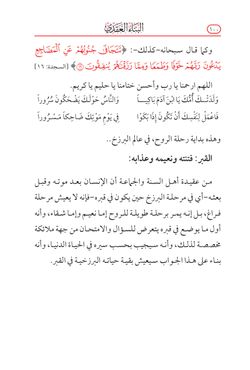 ١٠٠
البناء العقدي
وكما قال سبحانه -كذلك-: ﴿تَتَجَافَى جُنُوبُهُمْ عَنِ الْمَضَاجِعِ
يَدْعُونَ رَبَّهُمْ خَوْفًا وَطَمَعًا وَمِمَّا رَزَقْنَاهُمْ يُنفِقُونَ ١٦﴾ [السجدة: ١٦]
اللهم ارحمنا يا رب وأحسن ختامنا يا حليم يا كريم.
وَلَدَتْـكَ أُمُّكَ يَا ابْنَ آدَمَ بَاكِيـــاً وَالنَّاسُ حَوْلَـكَ يَضْحَكُونَ سُرُوراً
فَاعْمَلْ لِنَفْسِكَ أَنْ تَكُونَ إِذَا بَكَوْا فِي يَوْمِ مَوْتِكَ ضَاحِكاً مَسْـرُوراً
وهذه بداية رحلة الروح، في عالم البرزخ..
القبر: فتنته ونعيمه وعذابه:
مـن عقيـدة أهـل السـنة والجماعـة أن الإنسـان بعـد موتـه وقبـل
بعثه-أي في مرحلة البرزخ حين يكون في قبره-فإنه لا يعيش مرحلة
فراغ، بـل إنـه يمـر برحلـة طويلـة للـروح إمـا نعيـم وإمـا شـقاء، وأنه
أول مـا يوضـع في قبره يتعـرض للسـؤال والامتحـان مـن جهـة ملائكة
مخصصـة لذلـك، وأنـه سـيجيب بحسـب سـيره في الحيـاة الدنيـا، وأنه
بناء على هذا الجواب سيعيش بقية حياته البرزخية في القبر.